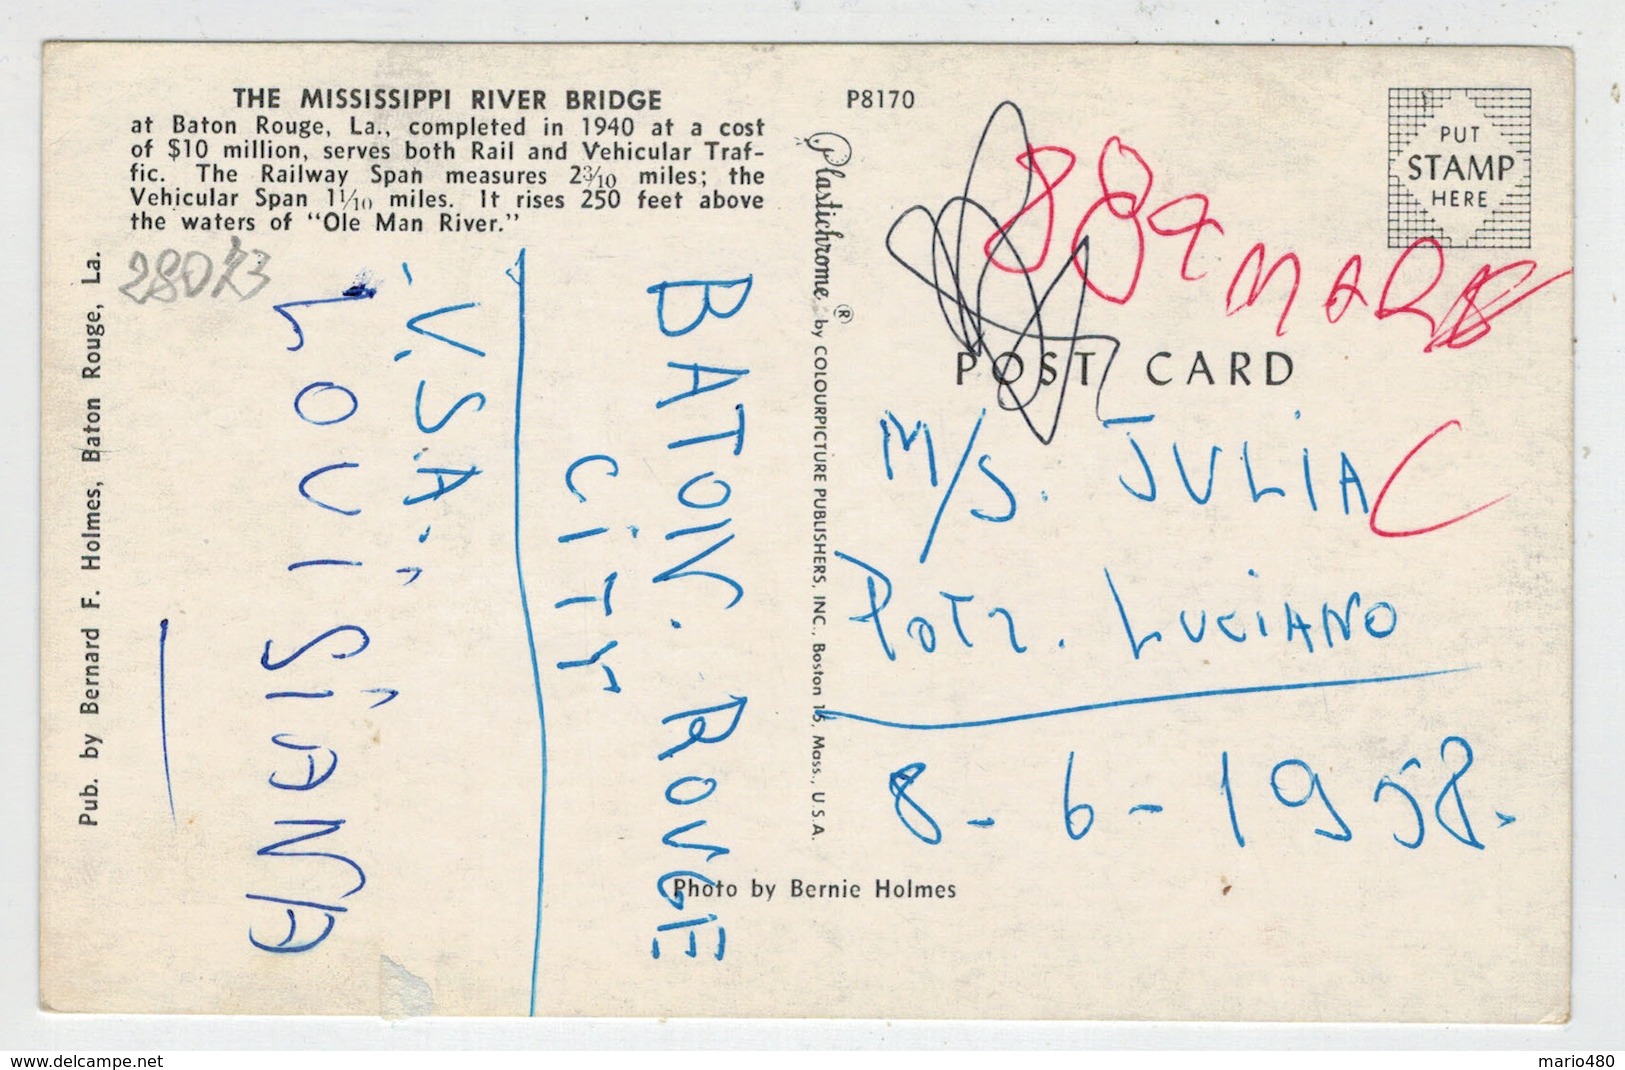 THE MISSISSIPPI RIVER BRIDGE
at Baton Rouge, La., completed in 1940 at a cost
of $10 million, serves both Rail and Vehicular Traf-
fic. The Railway Span measures 2 3/10 miles; the
Vehicular Span 1 1/10 miles. It rises 250 feet above
the waters of "Ole Man River."
Pub. by Bernard F. Holmes, Baton Rouge, La.
BATON. ROUGE
CITY
U.S.A.
LOUISIANA
Plastichrome ® by COLOURPICTURE PUBLISHERS, INC., Boston 15, Mass., U.S.A.
P8170
PUT
STAMP
HERE
POST CARD
M/S. JULIA C
LUCIANO
8-6-1958.
Photo by Bernie Holmes
www.delcampe.net
mario480